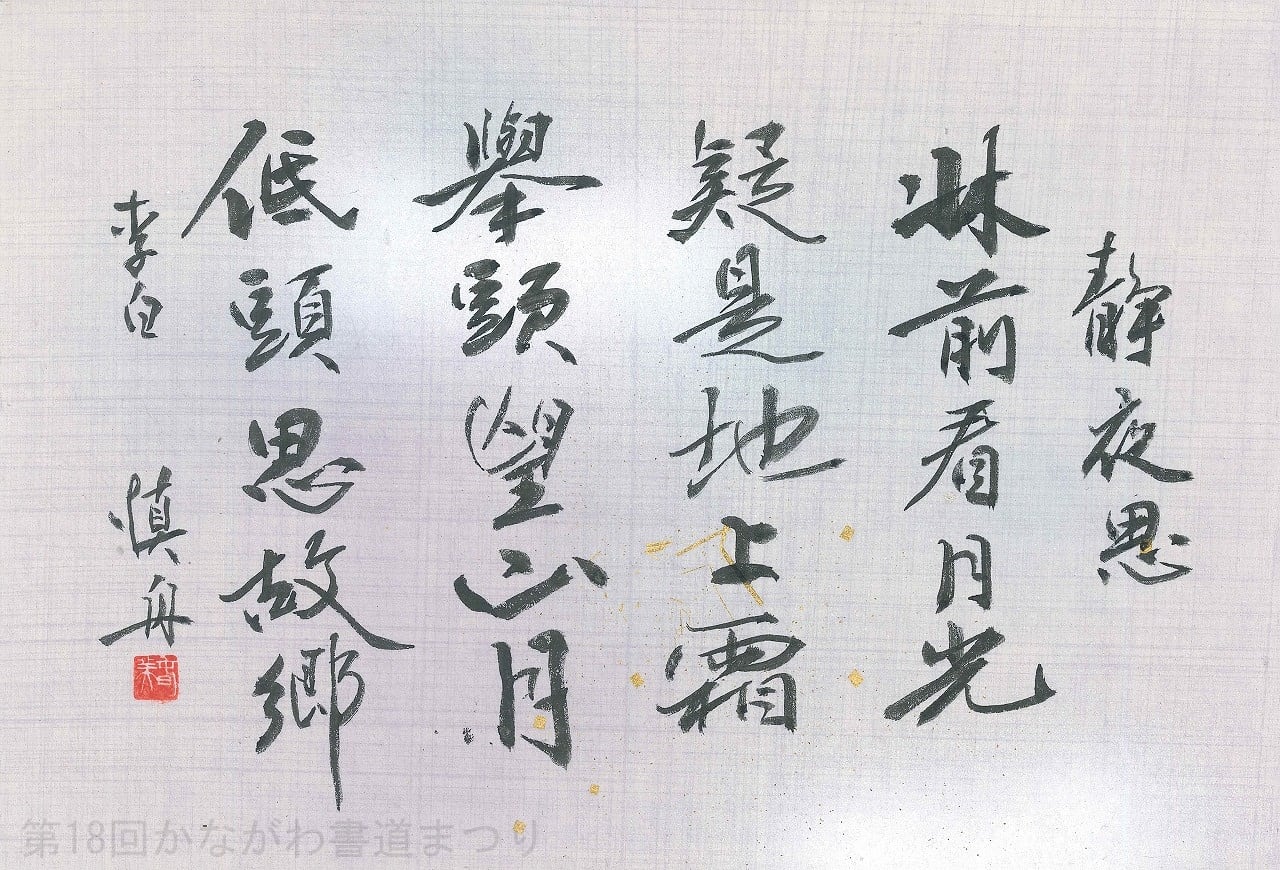 静夜思
牀前看月光
疑是地上霜
舉頭望山月
低頭思故鄉
李白
慎舟
第18回かながわ書道まつり